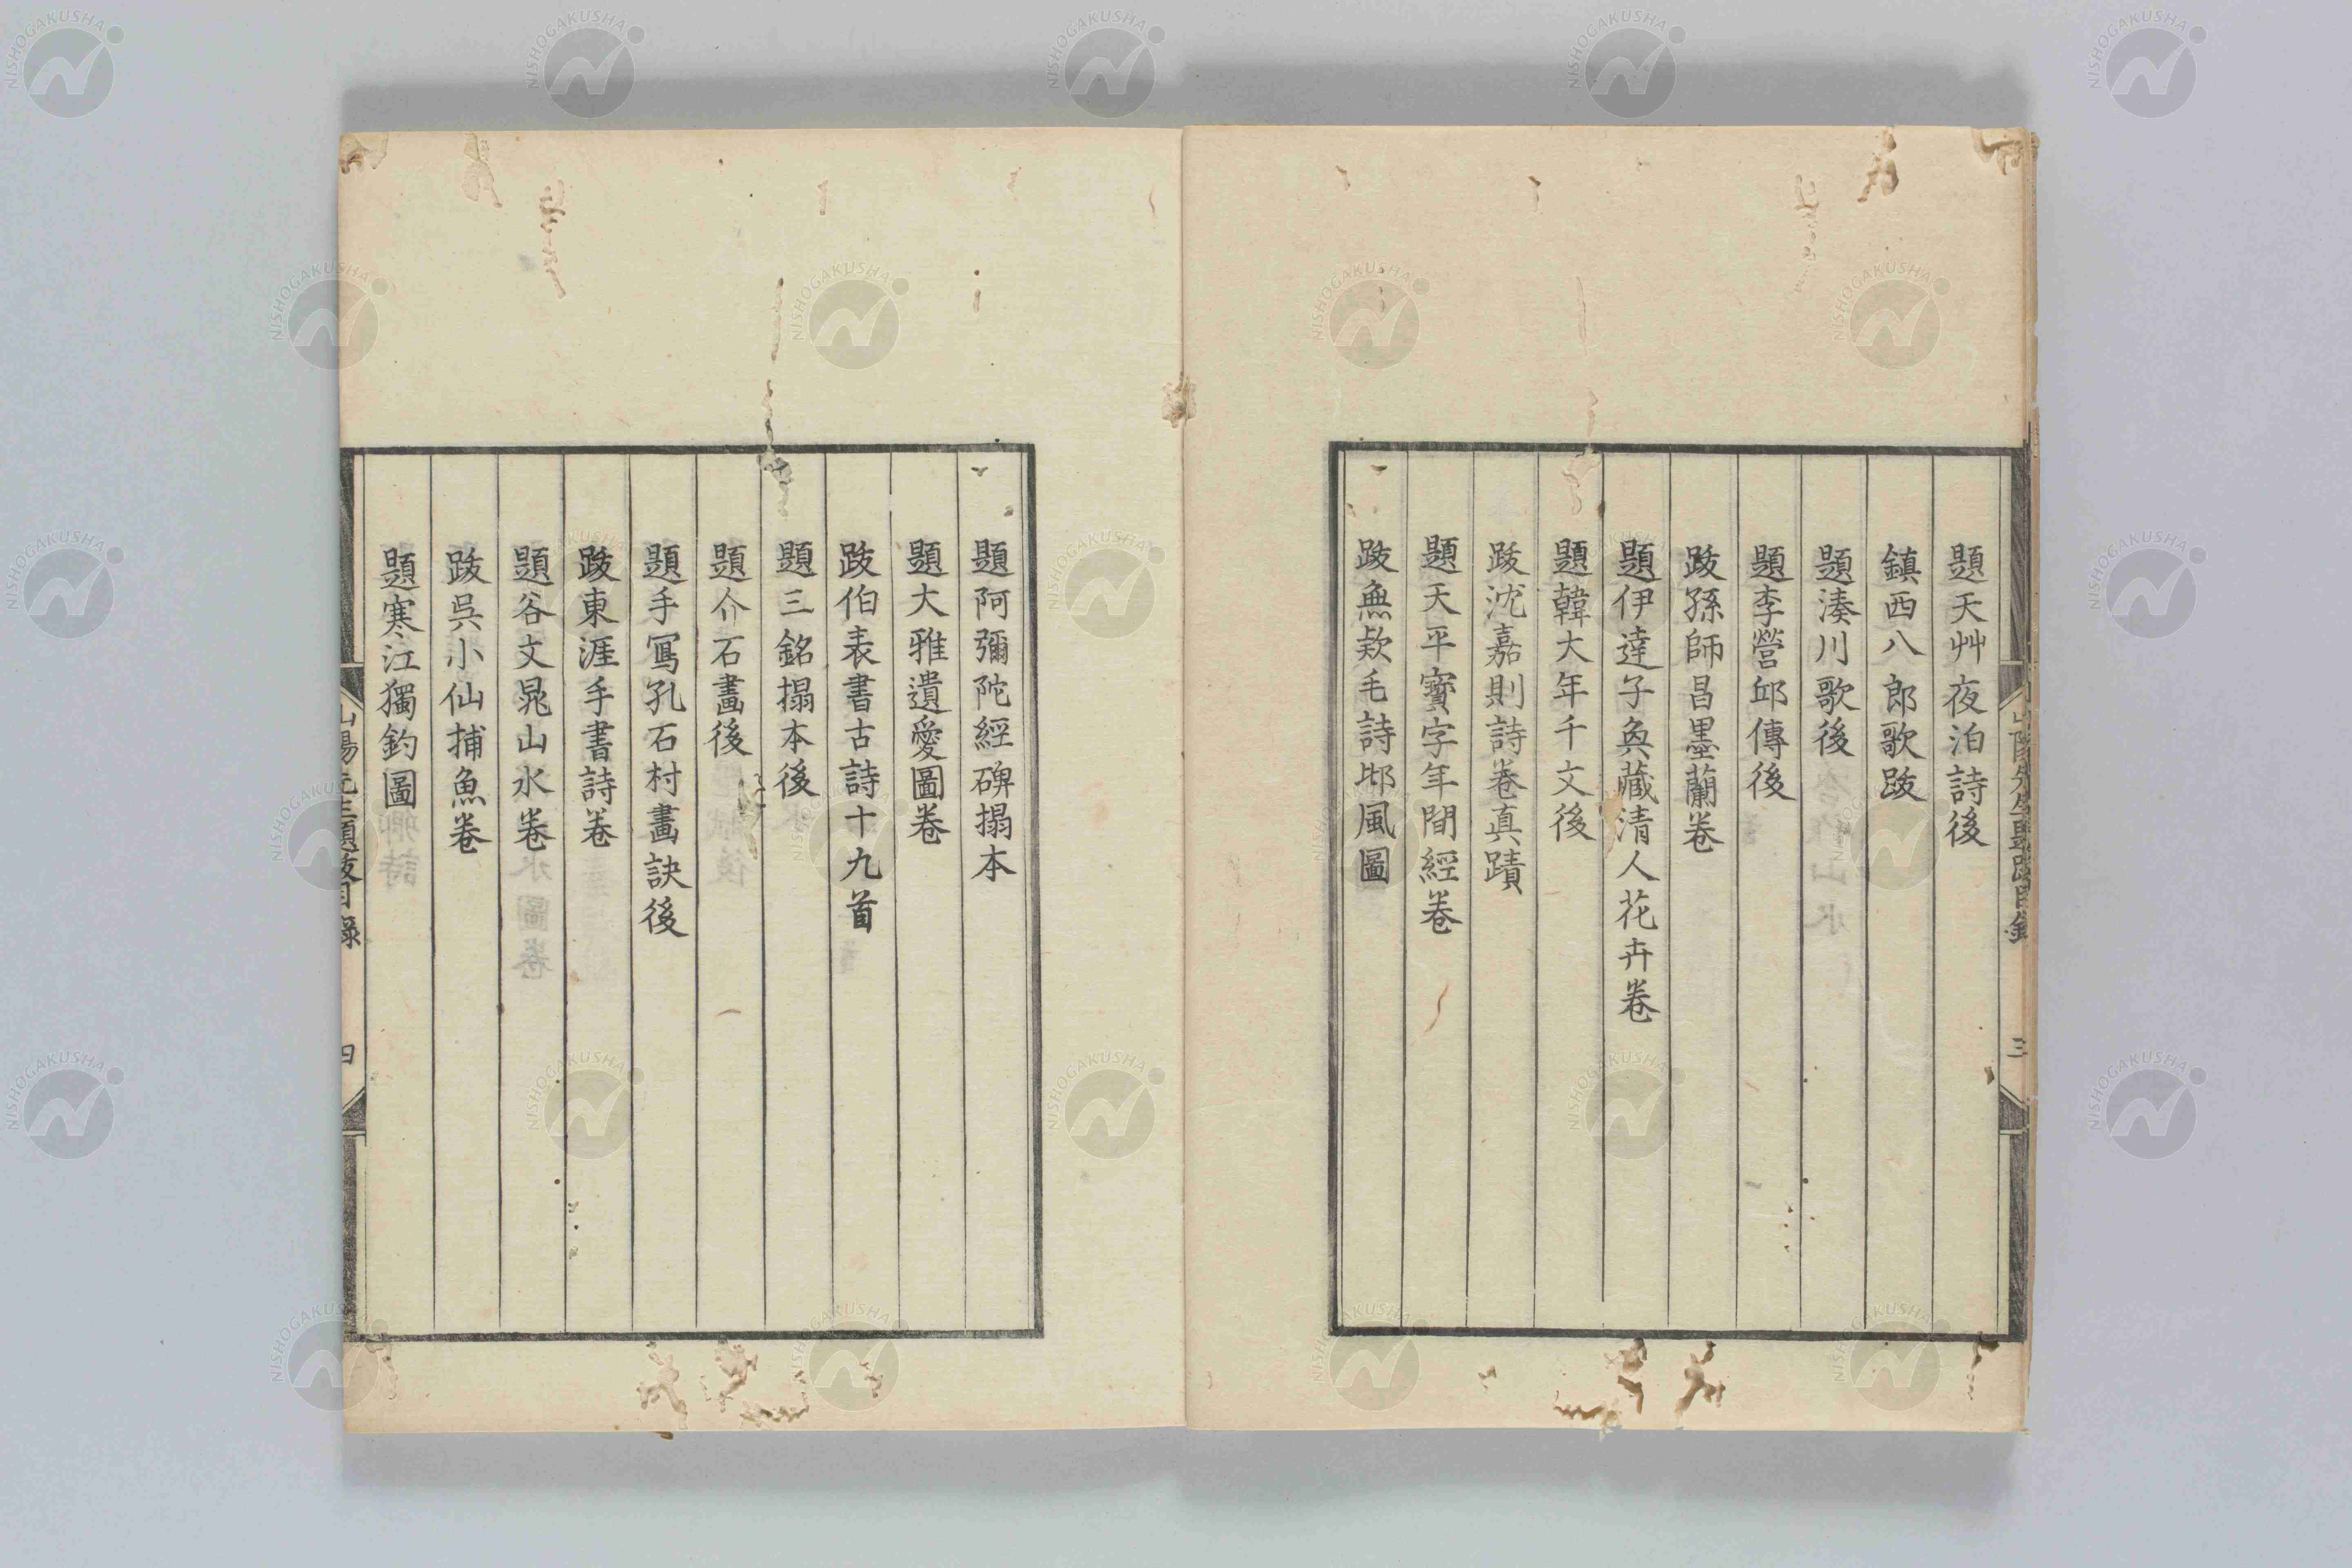 題天艸夜泊詩後
鎮西八郎歌跋
題湊川歌後
題李營邱傳後
跋孫師昌墨蘭卷
題伊達子奐藏清人花卉卷
題韓大年千文後
跋沈嘉則詩卷真蹟
題天平寶字年間經卷
跋無款毛詩邶風圖
山陽先生題跋目錄
三
題阿彌陀經碑搨本
題大雅遺愛圖卷
跋伯表書古詩十九首
題三銘搨本後
題介石畫後
題手寫孔石村畫訣後
跋東涯手書詩卷
題谷文晁山水卷
跋吳小仙捕魚卷
題寒江獨釣圖
山陽先生題跋目錄
四
NISHOGAKUSHA